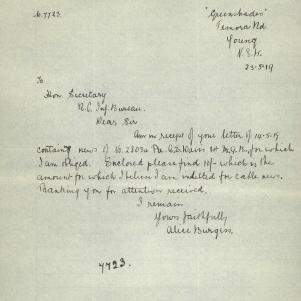 No. 7723.
"Greenshades"
Temora Rd.
Young
N.S.W.
23-5-19
To
Hon. Secretary
R.C. Inf. Bureau.
Dear Sir
Am in receipt of your letter of 19-5-19
containing news of No. 2303A Pte. C.E. Davis 1st M.G.Bn, for which
I am obliged. Enclosed please find 10/- which is the
amount for which I believe I am indebted for cable news.
Thanking you for attention received.
I remain
Yours faithfully
Alice Burgess.
7723.